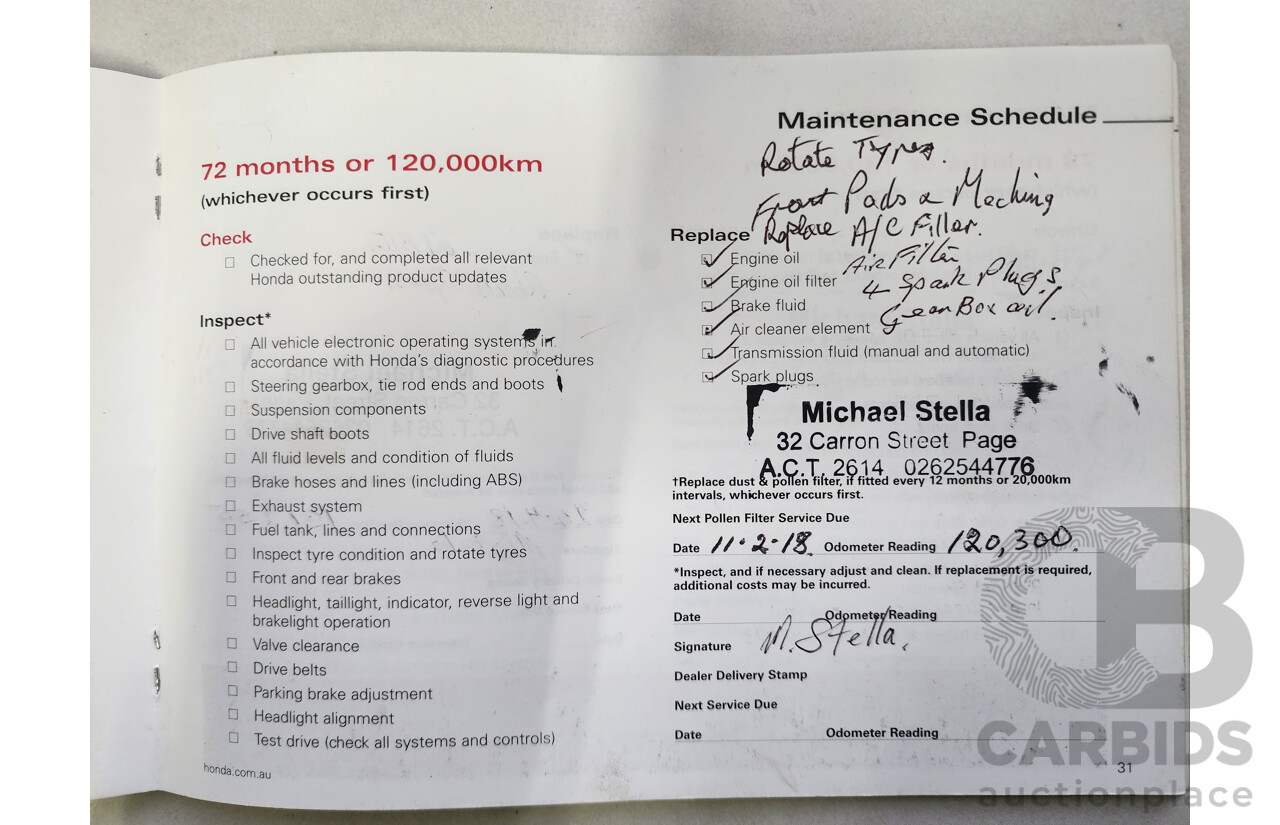 72 months or 120,000km
(whichever occurs first)
Check
Checked for, and completed all relevant
Honda outstanding product updates
Inspect*
All vehicle electronic operating systems in
accordance with Honda's diagnostic procedures
Steering gearbox, tie rod ends and boots
Suspension components
Drive shaft boots
All fluid levels and condition of fluids
Brake hoses and lines (including ABS)
Exhaust system
Fuel tank, lines and connections
Inspect tyre condition and rotate tyres
Front and rear brakes
Headlight, taillight, indicator, reverse light and
brakelight operation
Valve clearance
Drive belts
Parking brake adjustment
Headlight alignment
Test drive (check all systems and controls)
honda.com.au
Maintenance Schedule
Rotate Tyres.
Front Pads & Maching
Replace A/C Filter.
Air Filter
4 Spark Plugs.
Gear Box oil.
Replace
Engine oil
Engine oil filter
Brake fluid
Air cleaner element
Transmission fluid (manual and automatic)
Spark plugs
Michael Stella
32 Carron Street Page
A.C.T. 2614 0262544776
†Replace dust & pollen filter, if fitted every 12 months or 20,000km
intervals, whichever occurs first.
Next Pollen Filter Service Due
Date 11.2.18. Odometer Reading 120,300.
*Inspect, and if necessary adjust and clean. If replacement is required,
additional costs may be incurred.
Date Odometer Reading
Signature M. Stella.
Dealer Delivery Stamp
Next Service Due
Date Odometer Reading
31
CB
CARBIDS
auctionplace